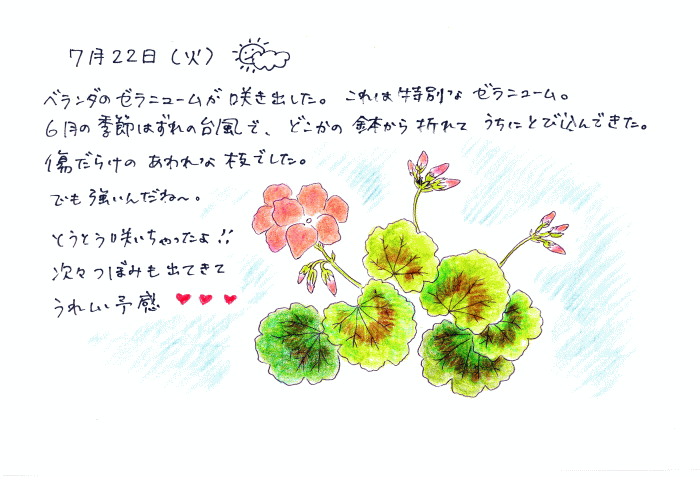 7月22日（火）
ベランダのゼラニュームが咲き出した。これは特別なゼラニューム。
6月の季節はずれの台風で、どこかの鉢から折れてうちにとび込んできた。
傷だらけのあわれな枝でした。
でも強いんだね〜。
とうとう咲いちゃったよ!!
次々つぼみも出てきて
うれしい予感 ♥♥♥